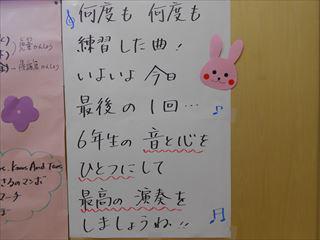 何度も 何度も
練習した曲!
いよいよ今日
最後の1回…
6年生の 音と心を
ひとつにして
最高の 演奏を
しましょうね!!